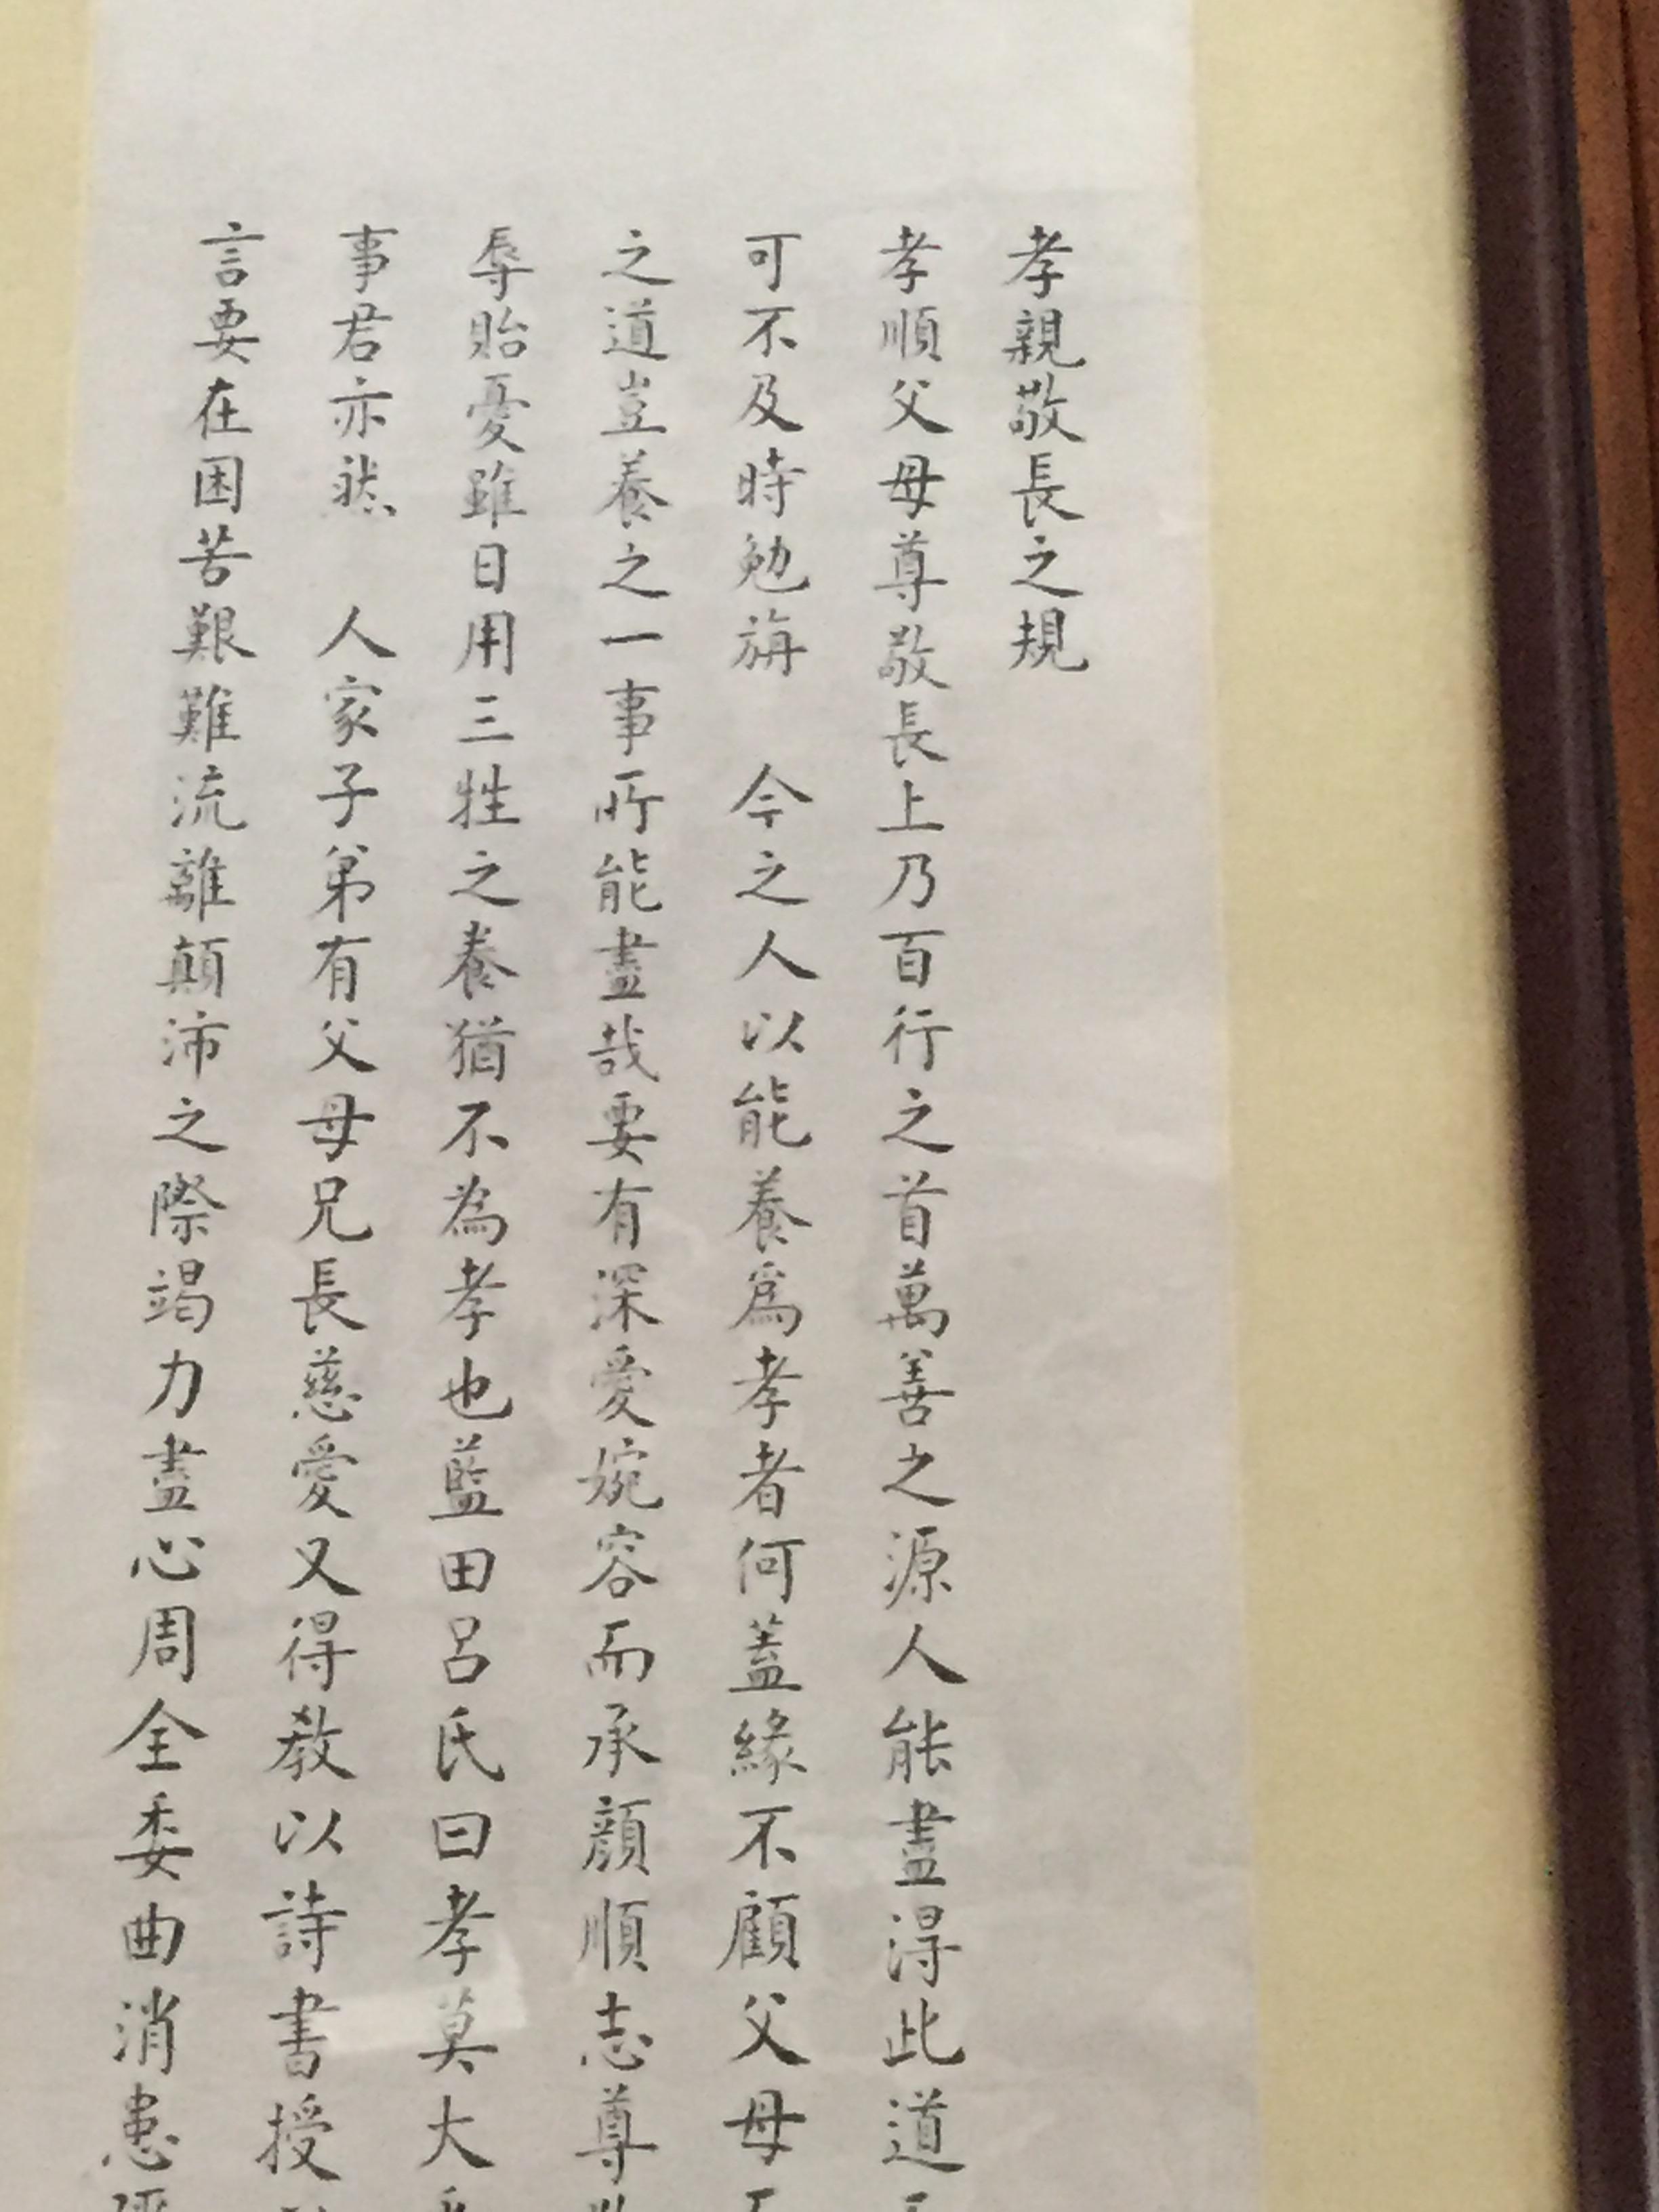 孝親敬長之規
孝順父母尊敬長上乃百行之首萬善之源人能盡得此道
可不及時勉旃 今之人以能養爲孝者何蓋緣不顧父母
之道豈養之一事所能盡哉要有深愛婉容而承顏順志尊
辱貽憂雖日用三牲之養猶不爲孝也藍田呂氏曰孝莫大
事君亦然 人家子弟有父母兄長慈愛又得教以詩書授
言要在困苦艱難流離顛沛之際竭力盡心周全委曲消患